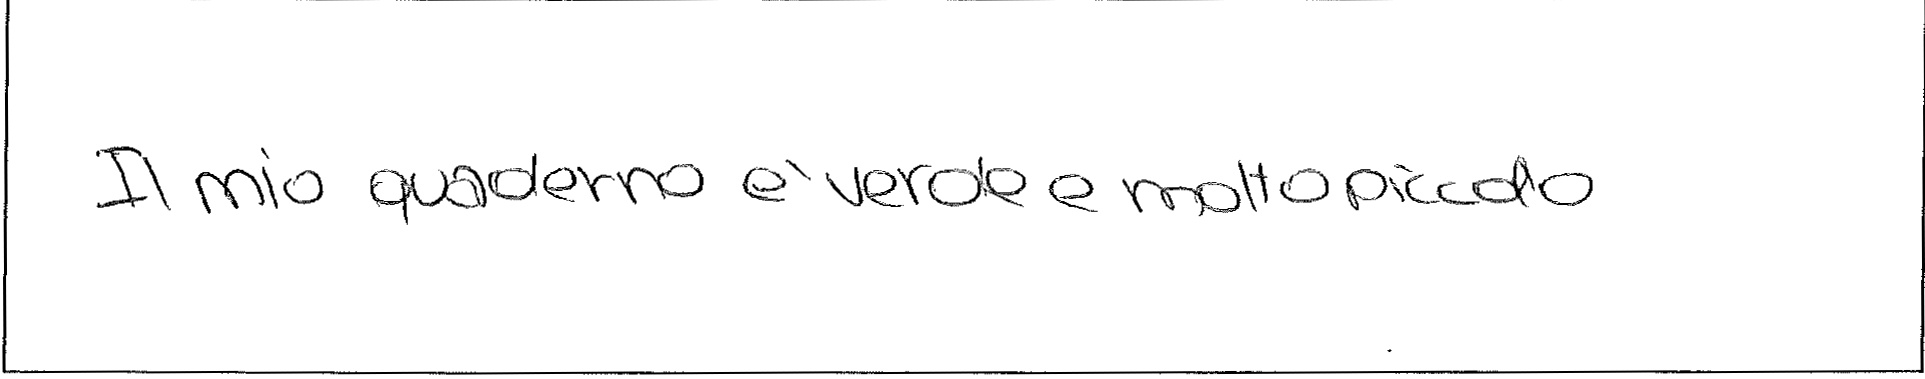 Il mio quaderno è verde e molto piccolo